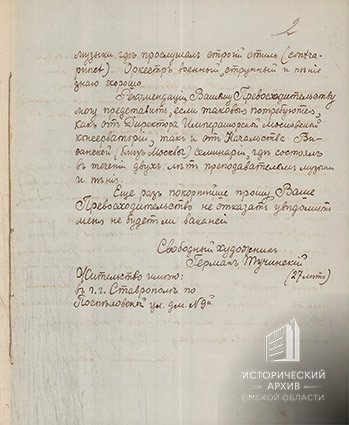 2
музыки гдѣ прослушалъ строгій стиль (contra-
punct). Оркестръ военный, струнный и пѣніе
знаю хорошо.
Рекомендаціи Вашему Превосходительству
могу представить, если таковыя потребуются,
какъ отъ Директора Императорской Московской
Консерваторіи, такъ и отъ Начальства Ви-
ѳанской (близъ Москвы) семинаріи, гдѣ состоялъ
въ теченіи двухъ лѣтъ преподавателемъ музыки
и пѣнія.
Еще разъ покорнѣйше прошу Ваше
Превосходительство не отказать увѣдомить
меня не будетъ ли вакансій
Свободный художникъ
Германъ Тучинскій
(27 лѣтъ)
Жительство имѣю:
въ г.г. Ставрополѣ по
Поспѣловской ул. дм. №9й
ИСТОРИЧЕСКИЙ
АРХИВ
ОМСКОЙ ОБЛАСТИ